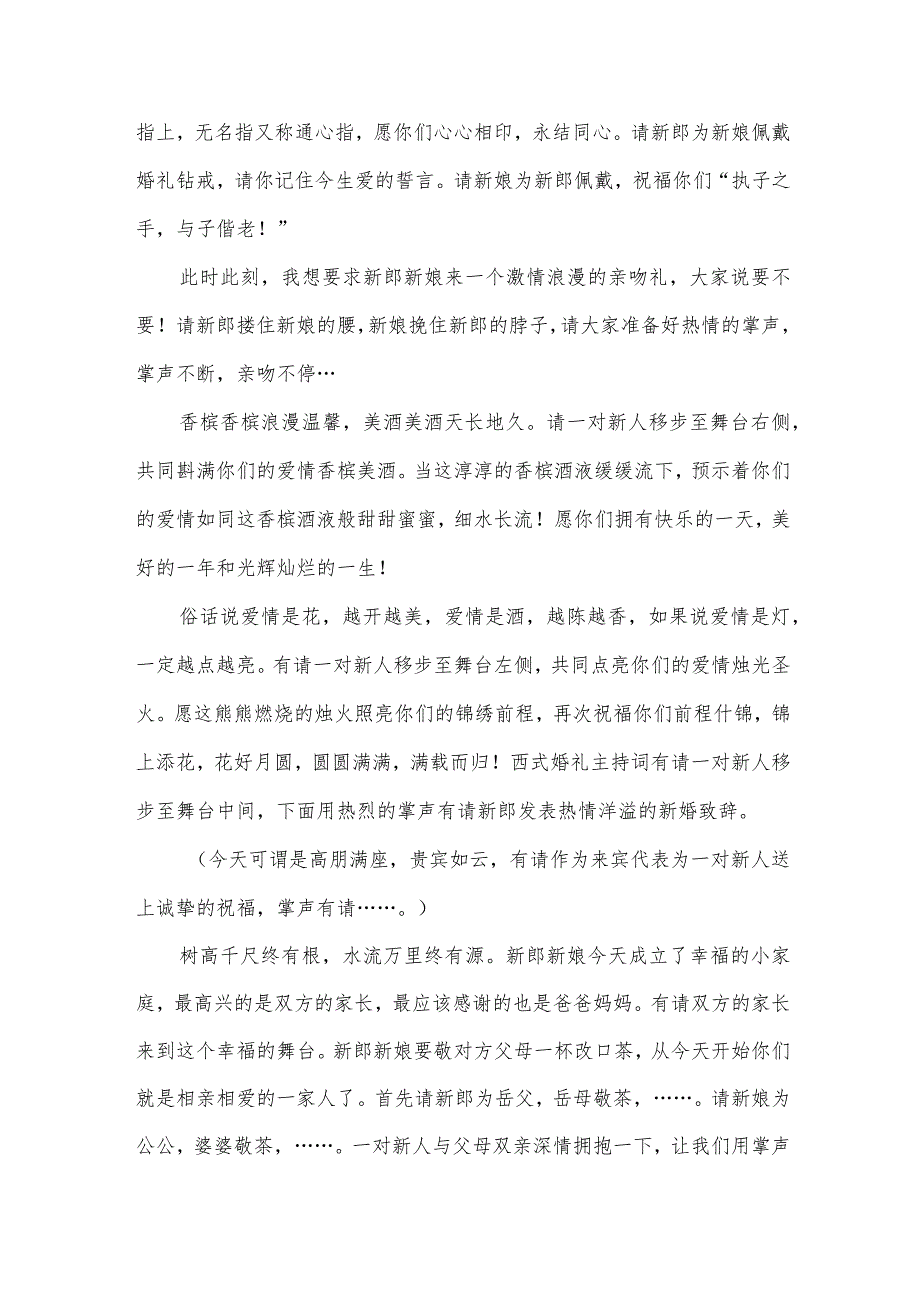 指上，无名指又称通心指，愿你们心心相印，永结同心。请新郎为新娘佩戴
婚礼钻戒，请你记住今生爱的誓言。请新娘为新郎佩戴，祝福你们“执子之
手，与子偕老！”
此时此刻，我想要求新郎新娘来一个激情浪漫的亲吻礼，大家说要不
要！请新郎搂住新娘的腰，新娘挽住新郎的脖子，请大家准备好热情的掌声，
掌声不断，亲吻不停…
香槟香槟浪漫温馨，美酒美酒天长地久。请一对新人移步至舞台右侧，
共同斟满你们的爱情香槟美酒。当这淳淳的香槟酒液缓缓流下，预示着你们
的爱情如同这香槟酒液般甜甜蜜蜜，细水长流！愿你们拥有快乐的一天，美
好的一年和光辉灿烂的一生！
俗话说爱情是花，越开越美，爱情是酒，越陈越香，如果说爱情是灯，
一定越点越亮。有请一对新人移步至舞台左侧，共同点亮你们的爱情烛光圣
火。愿这熊熊燃烧的烛火照亮你们的锦绣前程，再次祝福你们前程什锦，锦
上添花，花好月圆，圆圆满满，满载而归！西式婚礼主持词有请一对新人移
步至舞台中间，下面用热烈的掌声有请新郎发表热情洋溢的新婚致辞。
（今天可谓是高朋满座，贵宾如云，有请作为来宾代表为一对新人送
上诚挚的祝福，掌声有请……。）
树高千尺终有根，水流万里终有源。新郎新娘今天成立了幸福的小家
庭，最高兴的是双方的家长，最应该感谢的也是爸爸妈妈。有请双方的家长
来到这个幸福的舞台。新郎新娘要敬对方父母一杯改口茶，从今天开始你们
就是相亲相爱的一家人了。首先请新郎为岳父，岳母敬茶，……。请新娘为
公公，婆婆敬茶，……。一对新人与父母双亲深情拥抱一下，让我们用掌声